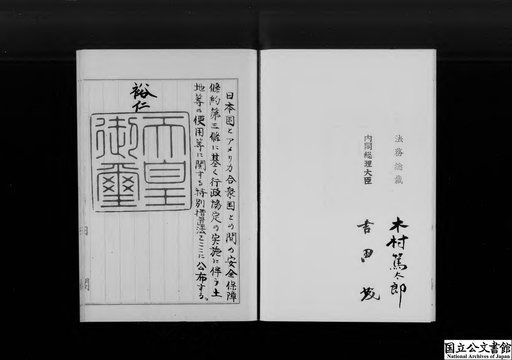 日本国とアメリカ合衆国との間の安全保障
條約第三條に基く行政協定の実施に伴う土
地等の使用等に関する特別措置法をここに公布する。
裕仁
天皇
御璽
法務総裁
木村篤太郎
内閣総理大臣
吉田茂
国立公文書館
National Archives of Japan